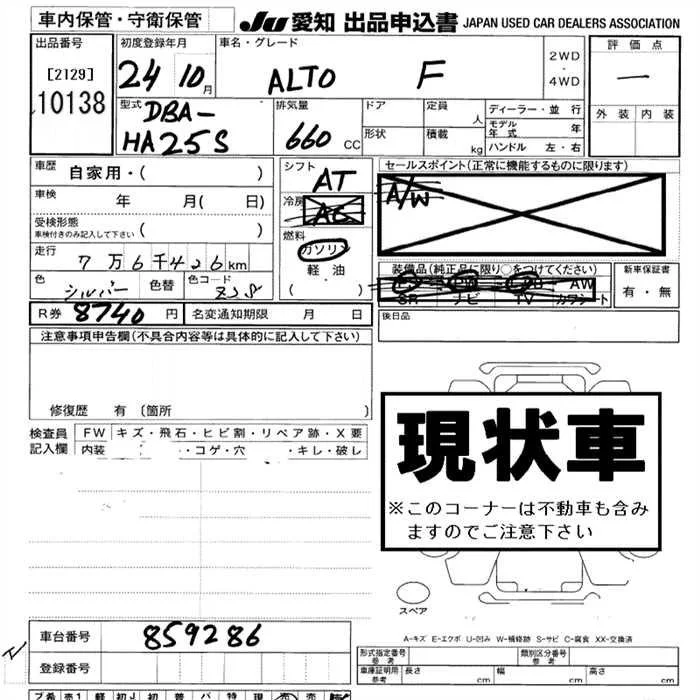 車内保管・守衛保管
JU 愛知 出品申込書 JAPAN USED CAR DEALERS ASSOCIATION
出品番号 初度登録年月 車名・グレード 評価点
[2129]
10138
24 10月 ALTO F
2WD
・
4WD
一
外装 内装
型式 排気量 ドア 定員 人 ディーラー・並行
DBA-
HA25S 660 CC
モデル年式 年
形状 積載 kg ハンドル 左・右
車歴 自家用・( )
シフト AT
セールスポイント(正常に機能するものに限ります)
A/W
車検 年 月( 日)
冷房 AC
受検形態 ( )
車検付きのみ記入して下さい
燃料
ガソリン
軽油
( )
走行 7万6千426km
装備品(純正品に限り○をつけてください) 新車保証書
AW
SR ナビ TV カワシート 有・無
色 シルバー 色替 色コード Z2S
R券 8740 円 名変通知期限 月 日
後日品
注意事項申告欄(不具合内容等は具体的に記入して下さい)
修復歴 有 〔箇所 〕
検査員記入欄 FW キズ・飛石・ヒビ割・リペア跡・X要
内装 ・コゲ・穴 ・キレ・破レ
現状車
※このコーナーは不動車も含み
ますのでご注意下さい
スペア
A-キズ E-エクボ U-凹み W-補修跡 S-サビ C-腐食 XX-交換済
車台番号 859286
登録番号
形式指定番号 参考 類別区分番号 参考
車庫証明用 参考 長さ cm 幅 cm 高さ cm